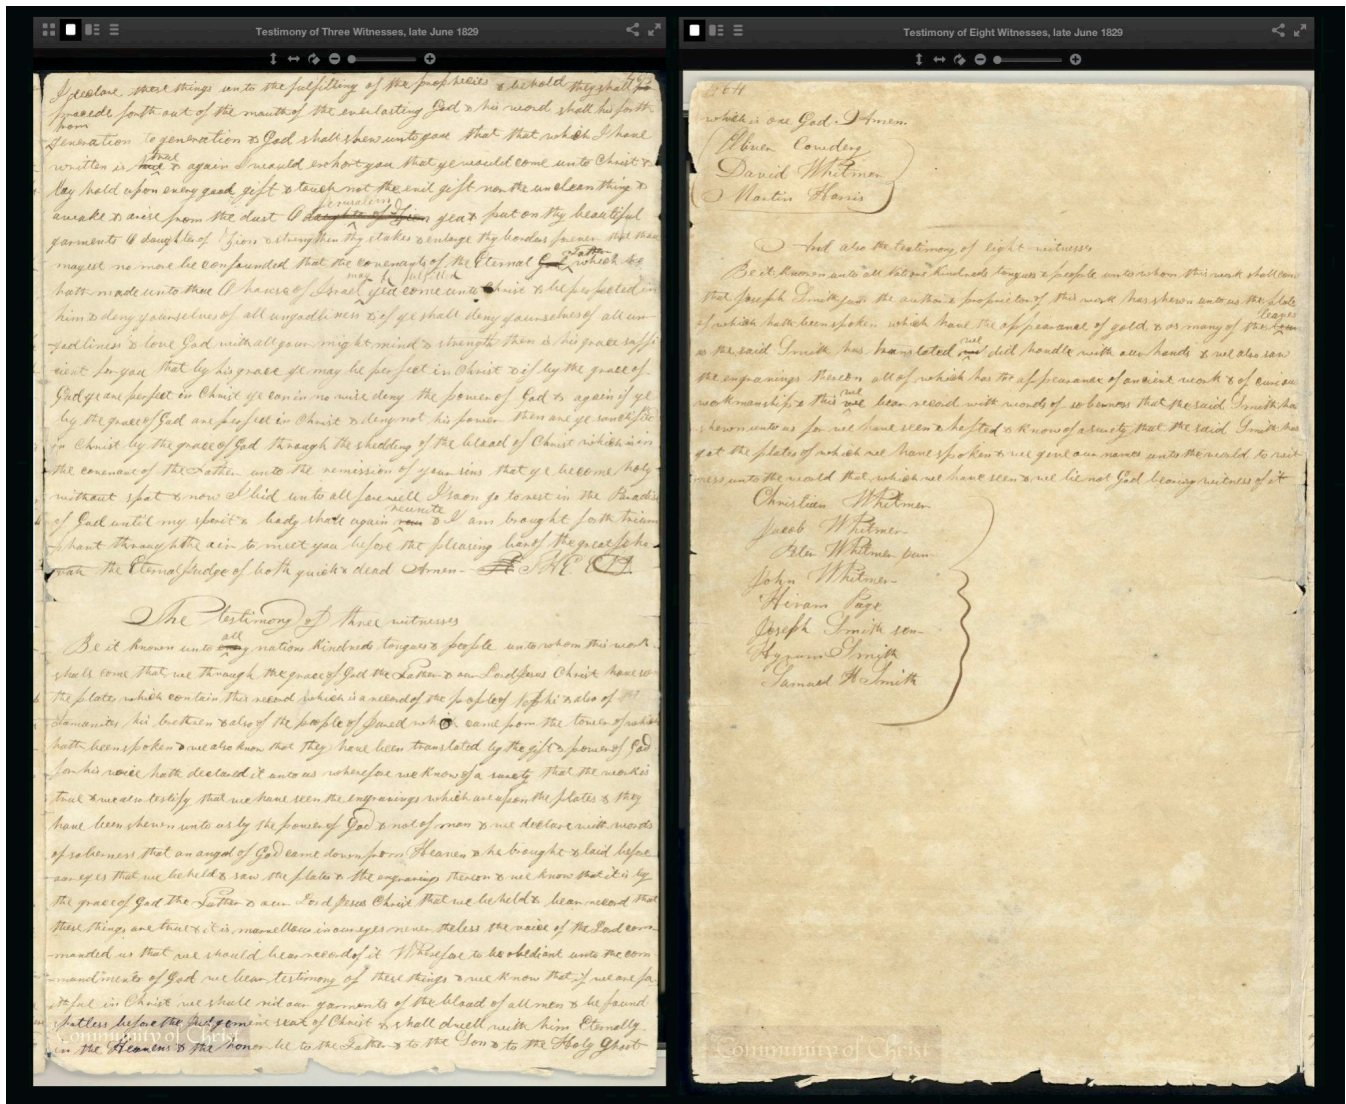 Testimony of Three Witnesses, late June 1829
I declare these things unto the fulfilling of the prophecies & behold they shall
proceede forth out of the mouth of the everlasting God & his word shall his forth
from
generation to generation & God shall shew unto you that that which I have
true
written is & again I would exhort you that ye would come unto Christ &
lay hold upon every good gift & touch not the evil gift nor the unclean thing &
Jerusalem
awake & arise from the dust O daughter of Zion yea & put on thy beautiful
garments O daughter of Zion & strengthen thy stakes & enlarge thy borders forever that thou
Father
mayest no more be confounded that the covenants of the Eternal God which he
may be fulfilled
hath made unto thee O house of Israel yea come unto Christ & be perfected in
him & deny yourselves of all ungodliness & if ye shall deny yourselves of all un-
godliness & love God with all your might mind & strength then is his grace suffi
cient for you that by his grace ye may be perfect in Christ & if by the grace of
God ye are perfect in Christ ye can in no wise deny the power of God & again if ye
by the grace of God are perfect in Christ & deny not his power then are ye sanctified
in Christ by the grace of God through the shedding of the blood of Christ which is in
the covenant of the Father unto the remission of your sins that ye become holy
without spot & now I bid unto all farewell I soon go to rest in the Paradise
reunite
of God until my spirit & body shall again & I am brought forth trium
phant through the air to meet you before the pleasing bar of the great Jeho
vah the Eternal Judge of both quick & dead Amen-
The testimony of three witnesses
all
Be it known unto nations kindreds tongues & people unto whom this work
shall come that we through the grace of God the Father & our Lord Jesus Christ have seen
the plates which contain this record which is a record of the people of Nephi & also of the
Lamanites his bretheren & also of the people of Jared which came from the tower of which
hath been spoken & we also know that they have been translated by the gift & power of God
for his voice hath declared it unto us wherefore we know of a surety that the work is
true & we also testify that we have seen the engravings which are upon the plates & they
have been shewn unto us by the power of God & not of man & we declare with words
of soberness that an angel of God came down from Heaven & he brought & laid before
our eyes that we beheld & saw the plates & the engravings thereon & we know that it is by
the grace of God the Father & our Lord Jesus Christ that we beheld & bear record that
these things are true & it is marvellous in our eyes never theless the voice of the Lord com-
manded us that we should bear record of it Wherefore to be obediant unto the com
mandments of God we bear testimony of these things & we know that if we are fa
ithful in Christ we shall rid our garments of the blood of all men & be found
spotless before the Judgement seat of Christ & shall dwell with him Eternally
in the Heavens & the honor be to the Father & to the Son & to the Holy Ghost
Community of Christ
Testimony of Eight Witnesses, late June 1829
464
which is one God. Amen.
Oliver Cowdery
David Whitmer
Martin Harris
And also the testimony of eight witnesses
Be it known unto all Nations kindreds tongues & people unto whom this work shall come
that Joseph Smith jun the author & proprietor of this work has shewn unto us the plates
leaves
of which hath been spoken which have the appearance of gold & as many of the
we
as the said Smith has translated did handle with our hands & we also saw
the engravings thereon all of which has the appearance of ancient work & of curious
we
workmanship & this we bear record with words of soberness that the said Smith has
shewn unto us for we have seen & hefted & know of a surety that the said Smith has
got the plates of which we have spoken & we give our names unto the world to wit
ness unto the world that which we have seen & we lie not God bearing witness of it
Christian Whitmer
Jacob Whitmer
Peter Whitmer Jun
John Whitmer
Hiram Page
Joseph Smith sen
Hyrum Smith
Samuel H Smith
Community of Christ